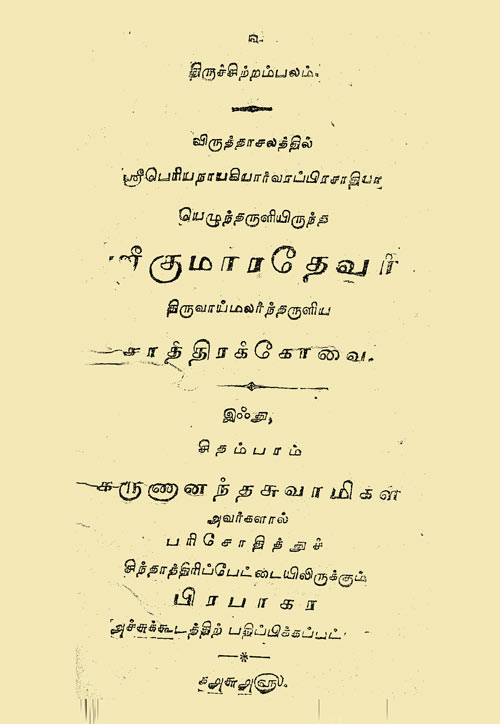 உ
திருச்சிற்றம்பலம்.
விருத்தாசலத்தில்
ஸ்ரீபெரியநாயகியார்வரப்பிரசாதியா
யெழுந்தருளியிருந்த
ஸ்ரீகுமாரதேவர்
திருவாய்மலர்ந்தருளிய
சாத்திரக்கோவை.
இஃது,
சிதம்பரம்
கருணானந்தசுவாமிகள்
அவர்களால்
பரிசோதித்துச்
சிந்தாத்திரிப்பேட்டையிலிருக்கும்
பிரபாகர
அச்சுக்கூடத்திற் பதிப்பிக்கப்பட்